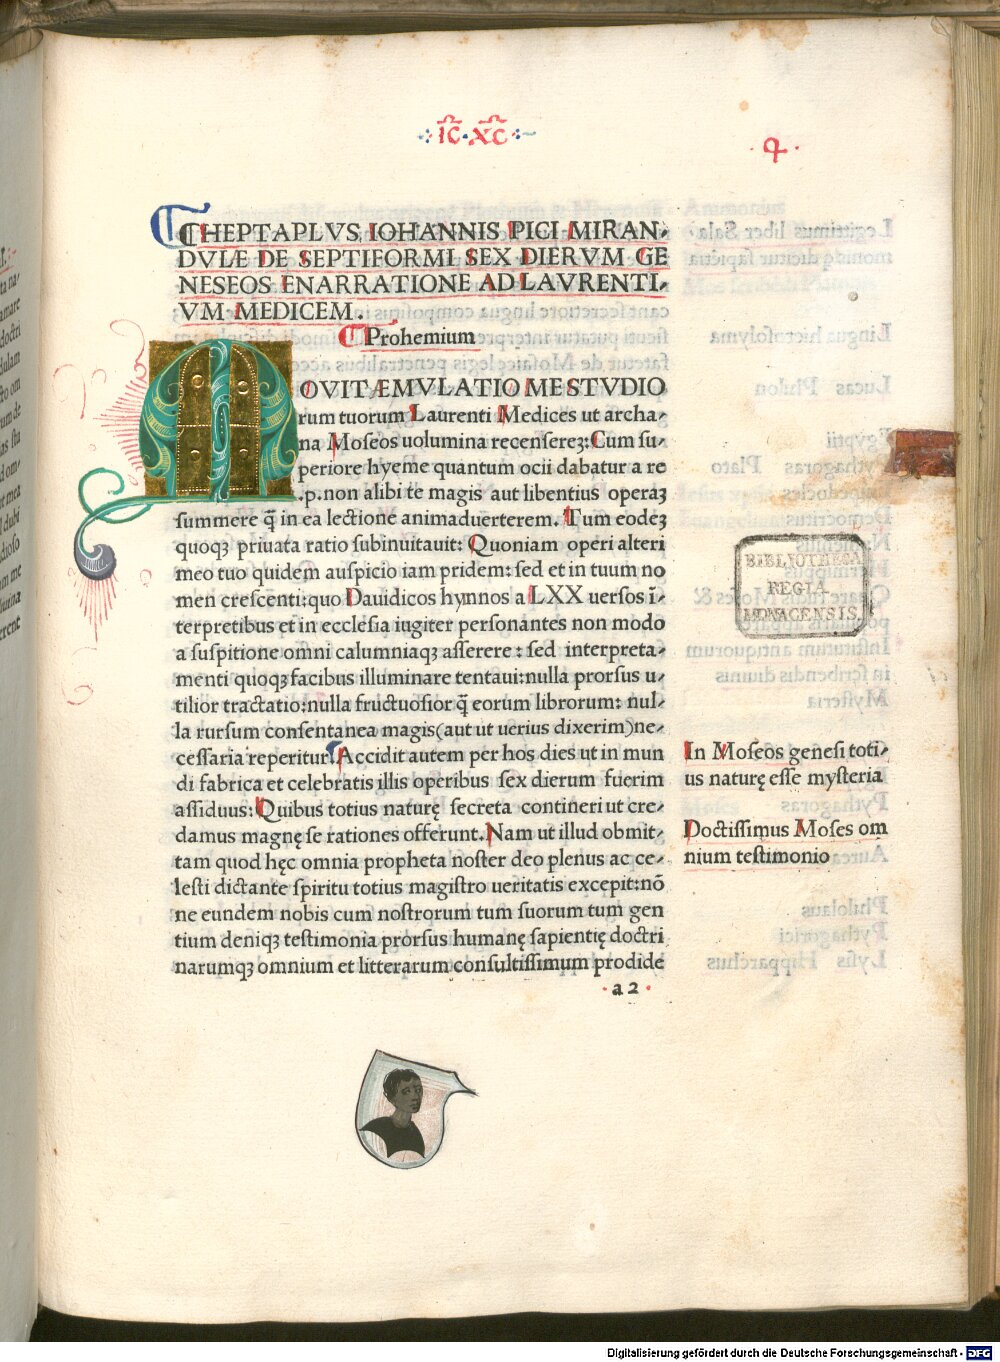 ·IC·XC·
4·
HEPTAPLVS IOHANNIS PICI MIRAN-
DVLÆ DE SEPTIFORMI SEX DIERVM GE
NESEOS ENARRATIONE AD LAVRENTI-
VM MEDICEM.
Prohemium
MOVIT ÆMVLATIO ME STVDIO
rum tuorum Laurenti Medices ut archa-
na Moseos uolumina recenserēꝫ: Cum su-
periore hyeme quantum ocii dabatur a re
.p. non alibi te magis aut libentius operaꝫ
summere q̄ in ea lectione animaduerterem. Tum eodeꝫ
quoqꝫ priuata ratio subinuitauit: Quoniam operi alteri
meo tuo quidem auspicio iam pridem: sed et in tuum no
men crescenti: quo Dauidicos hymnos a LXX uersos ī-
terpretibus et in ecclesia iugiter personantes non modo
a suspitione omni calumniaqꝫ asserere: sed interpreta-
menti quoqꝫ facibus illuminare tentaui: nulla prorsus u-
tilior tractatio: nulla fructuosior q̄ eorum librorum: nul-
la rursum consentanea magis (aut ut uerius dixerim) ne-
cessaria reperitur. Accidit autem per hos dies ut in mun
di fabrica et celebratis illis operibus sex dierum fuerim
assiduus: Quibus totius naturę secreta contineri ut cre-
damus magnę se rationes offerunt. Nam ut illud obmit-
tam quod hęc omnia propheta noster deo plenus ac ce-
lesti dictante spiritu totius magistro ueritatis excepit: nō
ne eundem nobis cum nostrorum tum suorum tum gen
tium deniqꝫ testimonia prorsus humanę sapientię doctri
narumqꝫ omnium et litterarum consultissimum prodide
·a2·
BIBLIOTHECA
REGIA
MONACENSIS.
In Moseos genesi toti-
us naturę esse mysteria
Doctissimus Moses om
nium testimonio
Digitalisierung gefördert durch die Deutsche Forschungsgemeinschaft - DFG